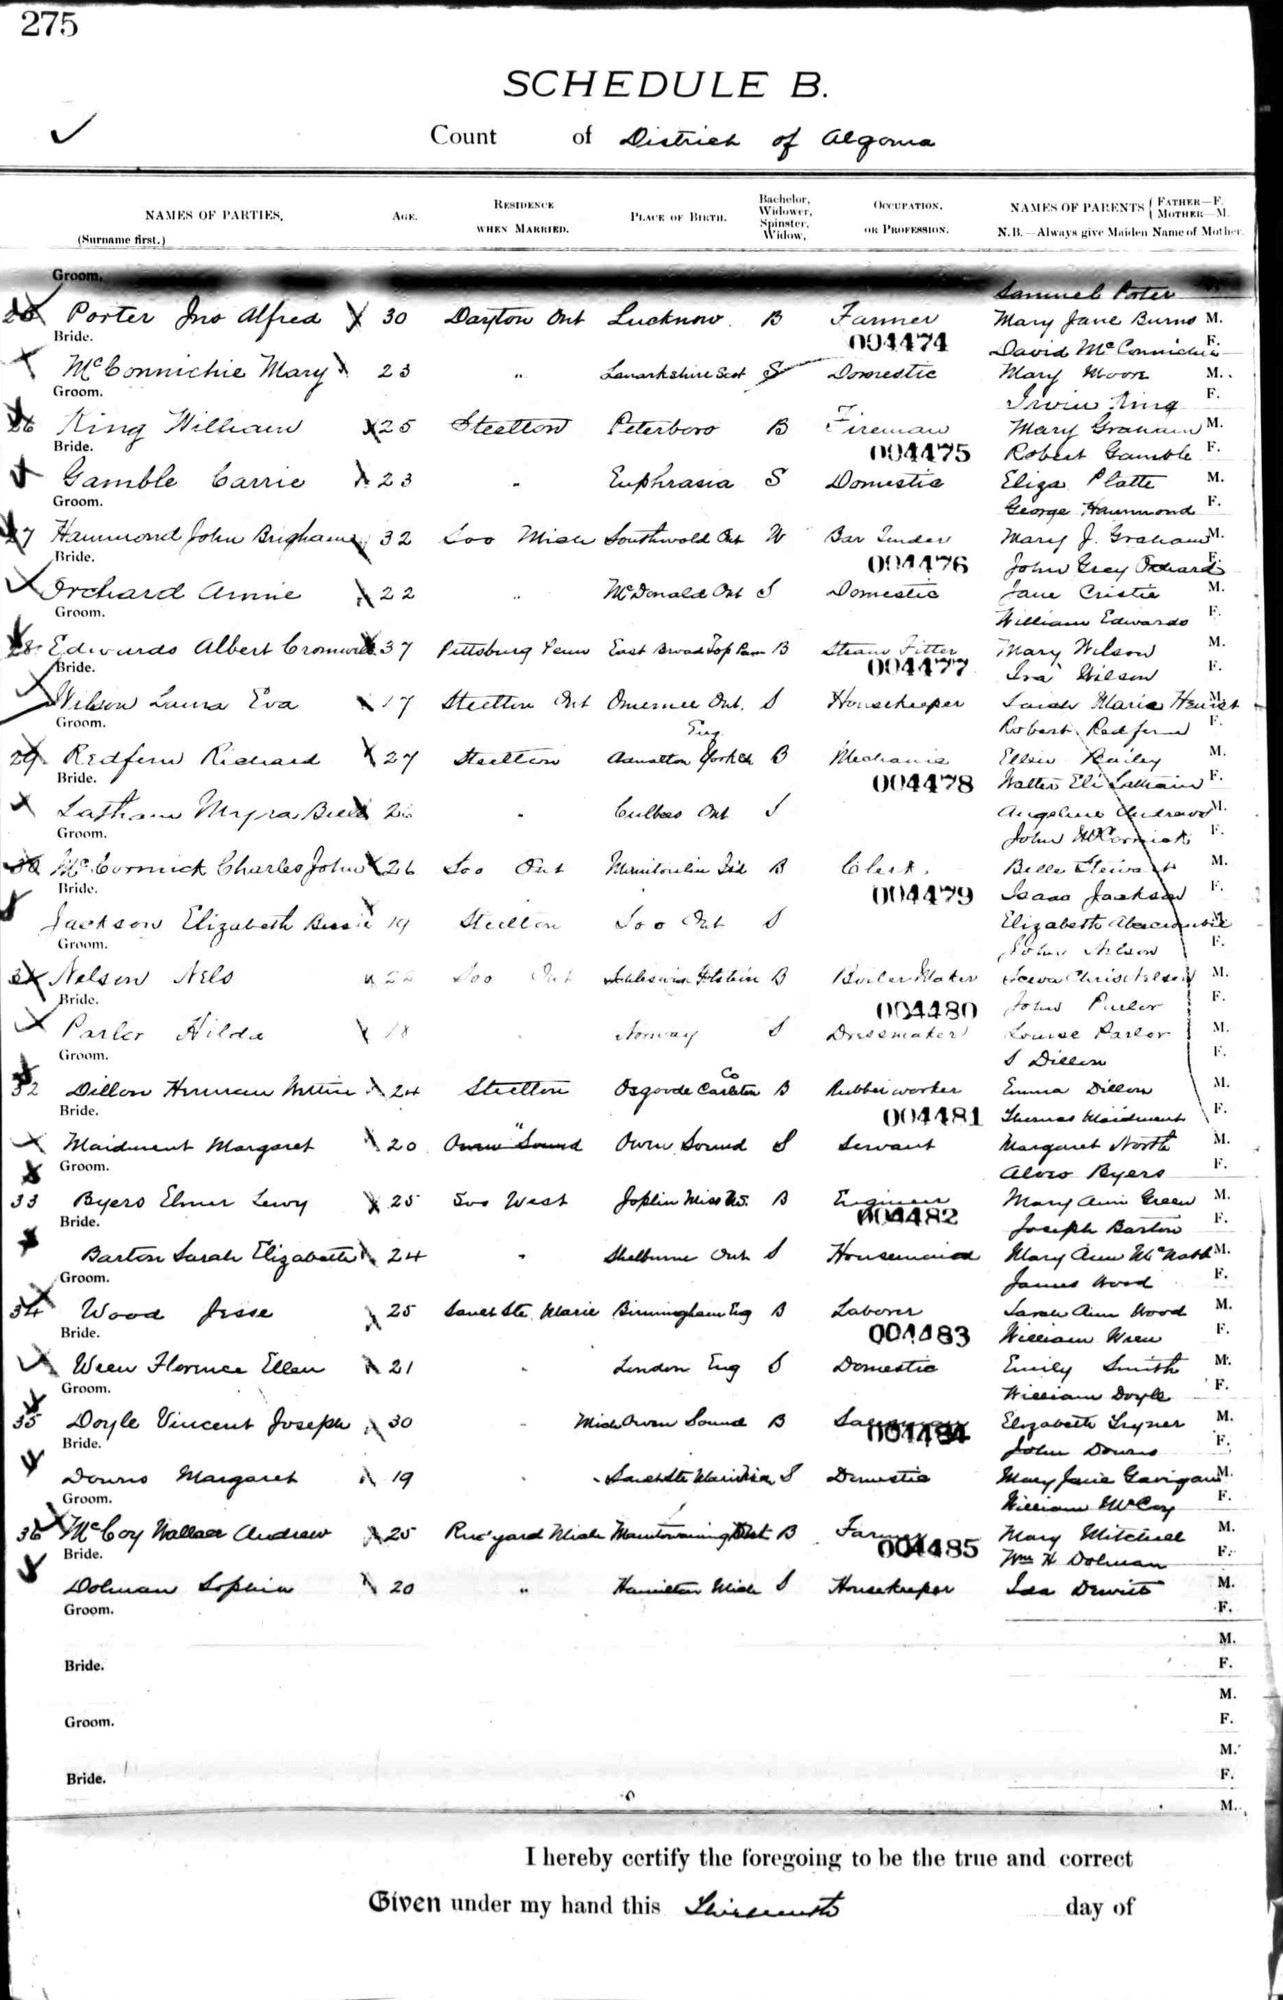 275
SCHEDULE B.
Count of District of Algoma
NAMES OF PARTIES. (Surname first.) AGE. RESIDENCE WHEN MARRIED. PLACE OF BIRTH. Bachelor, Widower, Spinster, Widow, OCCUPATION. OR PROFESSION. NAMES OF PARENTS { FATHER—F. MOTHER—M. N.B.—Always give Maiden Name of Mother.
Groom.
Samuel Porter
Porter Jno Alfred 30 Dayton Ont Lucknow. B Farmer Mary Jane Burns M.
Bride. 004474 David McConnichie F.
McConnichie Mary 23 " Lanarkshire Scot S Domestic Mary Moore M.
Groom. Irvin King F.
26 King William 25 Steelton Peterboro B Fireman Mary Graham M.
Bride. 004475 Robert Gamble F.
Gamble Carrie 23 " Euphrasia S Domestic Eliza Platte M.
Groom. George Hammond F.
27 Hammond John Brigham 32 Soo Mich Southwold Ont W Bar Tender Mary J. Graham M.
Bride. 004476 John Grey Orchard F.
Orchard Annie 22 " McDonald Ont S Domestic Jane Cristie M.
Groom. William Edwards F.
28 Edwards Albert Cromwell 37 Pittsburg Penn East Broad Top B Steam Fitter Mary Wilson M.
Bride. 004477 Ira Wilson F.
Wilson Laura Eva 17 Steelton Ont Omemee Ont. S Housekeeper Sarah Maria M.
Groom. Robert Redfern F.
Eng
29 Redfern Richard 27 Steelton B Mechanic Ellen Bailey M.
Bride. 004478 Walter Eli Latham F.
Latham Myra Bell " Ont S Angeline Andrews M.
Groom. John McCormick F.
30 McCormick Charles John 26 Soo Ont Manitoulin Isd B Clerk. Belle Stewart M.
Bride. 004479 Isaac Jackson F.
Jackson Elizabeth Bessie 19 Steelton Soo Ont S Elizabeth Abercrombie M.
Groom. John Nelson F.
31 Nelson Nels 22 Soo Ont Schleswig Holstein B Boiler Maker M.
Bride. 004480 John Parlor F.
Parlor Hilda 18 Norway S Dressmaker Louise Parlor M.
Groom. S Dillon F.
Co
32 Dillon Herman 24 Steelton Osgoode Carleton B Rubber worker Emma Dillon M.
Bride. 004481 Thomas Maidment F.
Maidment Margaret 20 Owen Sound " Owen Sound S Servant Margaret North M.
Groom. Byers F.
33 Byers Elmer Lewy 25 Soo West Joplin B Engineer Mary Ann Green M.
Bride. 004482 Joseph Barton F.
Barton Sarah Elizabeth 24 " Shelburne Ont S Housemaid Mary Ann McNabb M.
Groom. James Wood F.
34 Wood Jesse 25 Sault Ste. Marie Birmingham Eng B Laborer Sarah Ann Wood M.
Bride. 004483 William Wren F.
Wren Florence Ellen 21 " London Eng S Domestic Emily Smith M.
Groom. William Doyle F.
35 Doyle Vincent Joseph 30 " Mich Owen Sound B Elizabeth M.
Bride. 004484 John Downs F.
Downs Margaret 19 " Sault Ste Marie S Domestic Mary Jane Gavigan M.
Groom. William McCoy F.
36 McCoy Wallace Andrew 25 Rudyard Mich Manitowaning Ont B Farmer Mary Mitchell M.
Bride. 004485 Wm H Dolman F.
Dolman Sophia 20 " Hamilton Mich S Housekeeper Ida Dewitt M.
Groom. F.
M.
Bride. F.
M.
Groom. F.
M.
Bride. F.
M.
I hereby certify the foregoing to be the true and correct
Given under my hand this day of